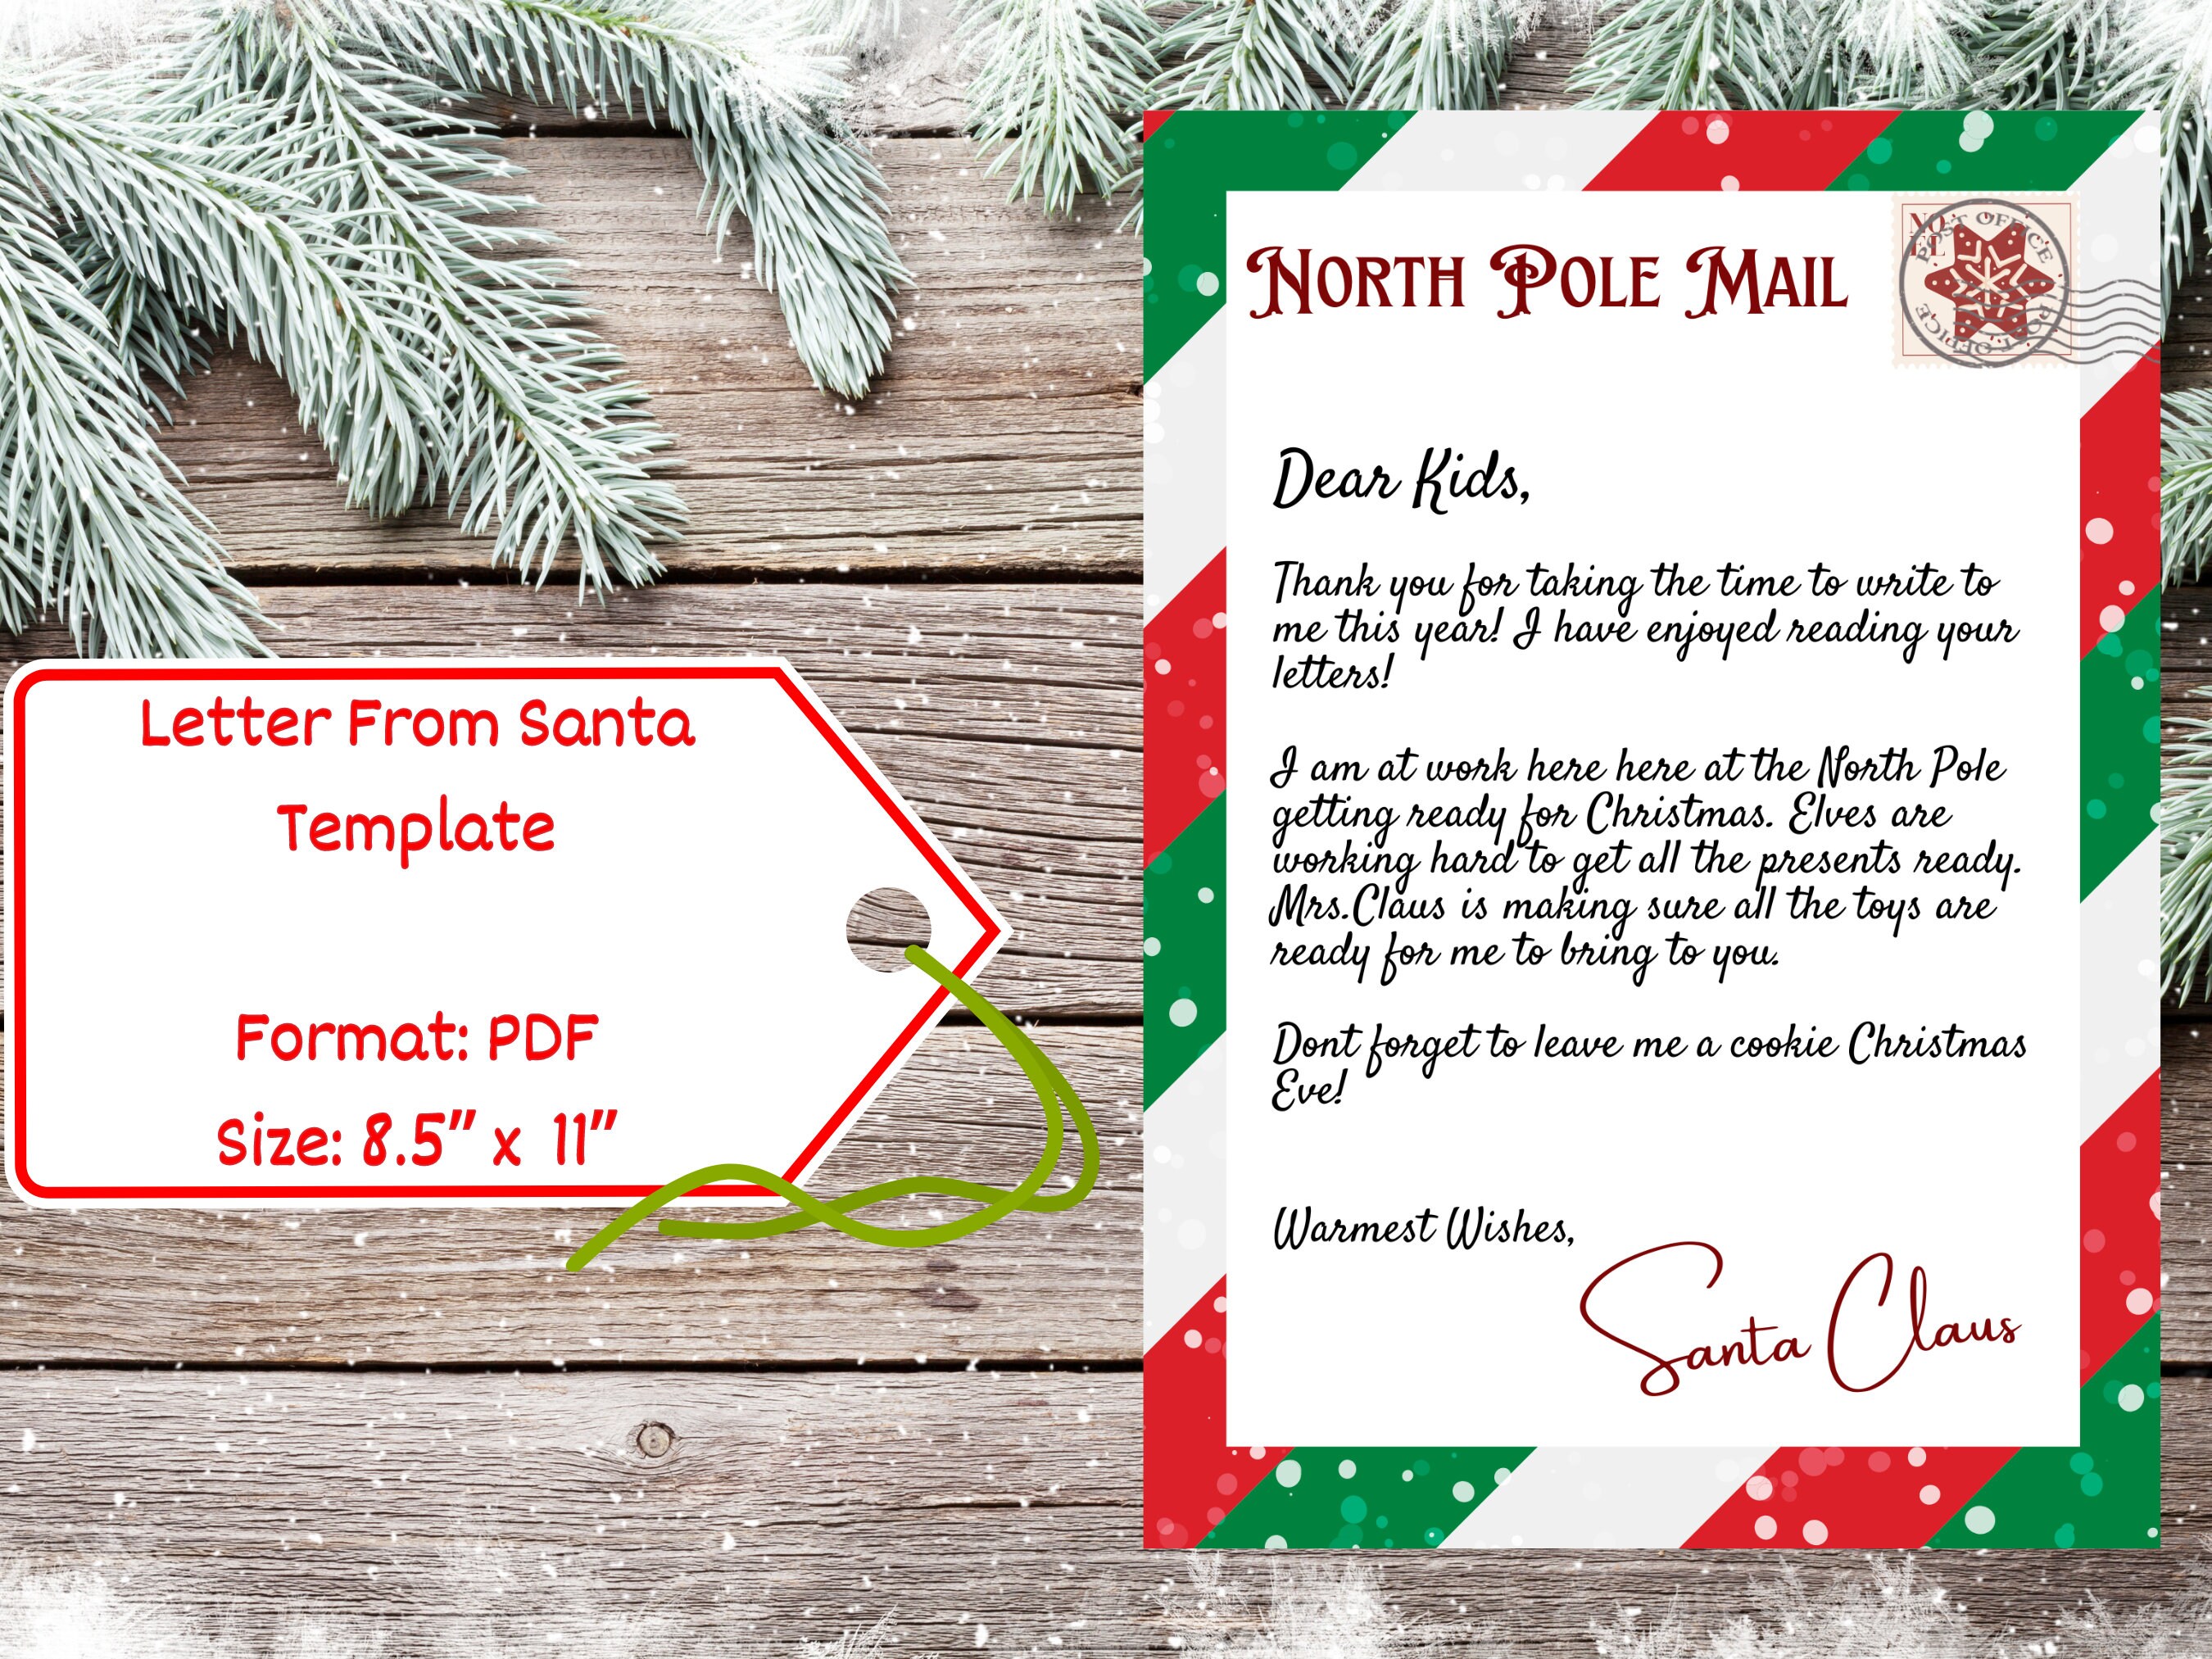 Letter From Santa
Template
Format: PDF
Size: 8.5" x 11"
North Pole Mail
NO
EL
POST OFFICE
POST OFFICE
Dear Kids,
Thank you for taking the time to write to
me this year! I have enjoyed reading your
letters!
I am at work here here at the North Pole
getting ready for Christmas. Elves are
working hard to get all the presents ready.
Mrs.Claus is making sure all the toys are
ready for me to bring to you.
Dont forget to leave me a cookie Christmas
Eve!
Warmest Wishes,
Santa Claus